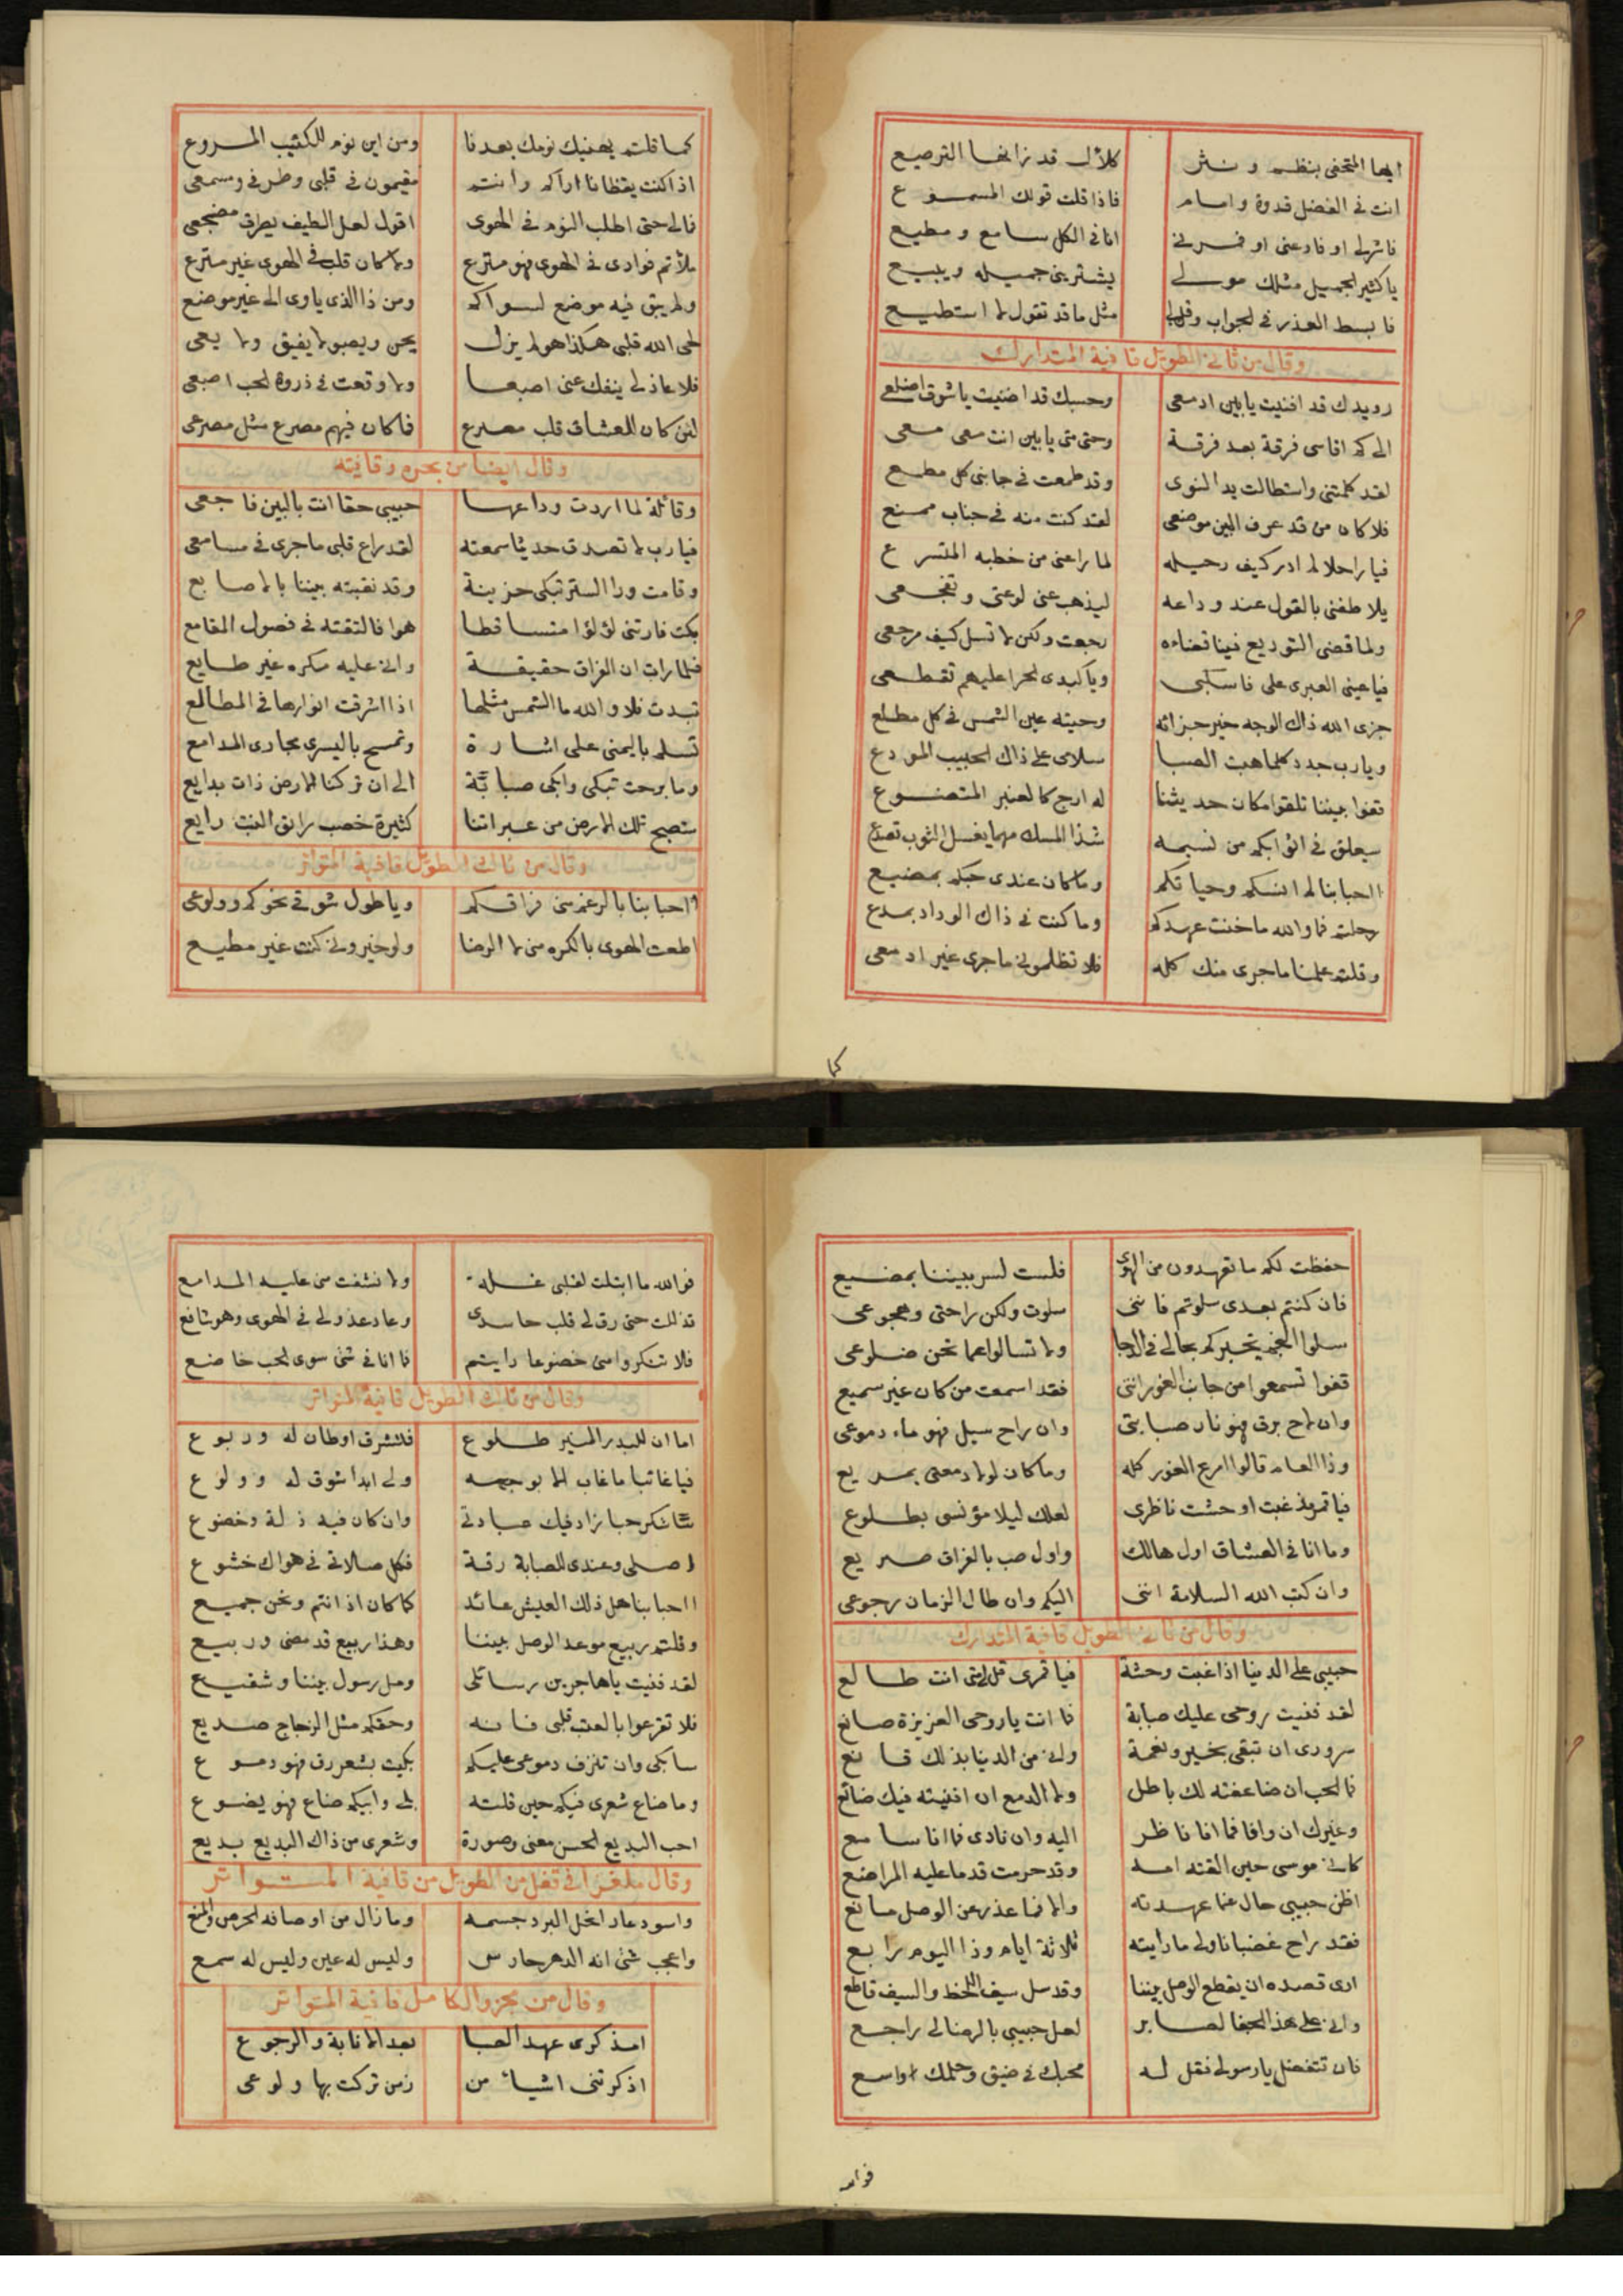 ايها المتحفى بنظم ونثر كلأل قد زانها الترصيع
انت فى الفضل قدوة وامام فاذا قلت قولك المسموع
يا كثير الجميل مثلك مولى يشترينى جميله ويبيع
فابسط العذر فى الجواب وقل لى مثل ما قد تقول لا استطيع
وقال من ثانى الطويل قافية المتدارك
رويدك قد افنيت يا بين ادمعى وحسبك قد اضنيت يا شوق اضلعى
الى كم اقاسى فرقة بعد فرقة وحتى متى يا بين انت معى معى
لقد كلمتنى واستطالت يد النوى وقد طمعت فى جانبى كل مطمع
فلا كان من قد عرف البين موضعى لقد كنت منه فى جناب ممنع
فيا راحلا لم ادر كيف رحيله لما راعنى من خطبه المتسرع
يلاطفنى بالقول عند وداعه ليذهب عنى لوعتى وتفجعى
ولما قضى التوديع فينا قضاءه رجعت ولكن لا تسل كيف مرجعى
فيا عينى العبرى على فاسكبى ويا كبدى الحرا عليهم تقطعى
جزى الله ذاك الوجه خير جزائه وحيته عين الشمس فى كل مطلع
ويا رب جدد كلما هبت الصبا سلامى على ذاك الحبيب المودع
قفوا بيننا تلقوا مكان حديثنا له ارج كالعنبر المتضوع
سيعلق فى اثوابكم من نسيمه شذا المسك مهما يغسل الثوب تصدع
احبابنا لم انسكم وحياتكم وما كان عندى حبكم بمضيع
رحلتم فما والله ما خنت عهدكم وما كنت فى ذاك الوداد بمدع
وقلتم علمنا ما جرى منك كله فلا تظلمونى ما جرى غير ادمعى
كما
كما قلتم يهنيك نومك بعدنا ومن اين نوم للكئيب المروع
اذا كنت يقظانا اراكم وانتم مقيمون فى قلبى وطرفى ومسمعى
فمالى حتى اطلب النوم فى الهوى اقول لعل الطيف يطرق مضجعى
ملأتم فوادى فى الهوى فهو مترع ولا كان قلب فى الهوى غير مترع
ولم يبق فيه موضع لسواكم ومن ذا الذى ياوى الى غير موضع
لحى الله قلبى هكذا هو لم يزل يحن ويصبو لا يفيق ولا يعى
فلا عاذلى ينفك عنى اصبعا ولا وقعت فى ذروة الحب اصبعى
لئن كان للعشاق قلب مصرع فما كان فيهم مصرع مثل مصرعى
وقال ايضا من بحره وقافيته
وقائلة لما اردت وداعها حبيبى حقا انت بالبين فاجعى
فيا رب لا تصدق حديثا سمعته لقد راع قلبى ما جرى فى مسامعى
وقامت ورا الستر تبكى حزينة وقد نقبته بيننا بالاصابع
بكت فارتنى لؤلؤا متساقطا هوا فالتقته فى فصول المقامع
فلما رات ان الفراق حقيقة وانى عليه مكره غير طايع
تبدت فلا والله ما الشمس مثلها اذا اشرقت انوارها فى المطالع
تسلم باليمنى على اشارة وتمسح باليسرى مجارى المدامع
وما برحت تبكى وابكى صبابة الى ان تركنا الارض ذات بدايع
ستصبح تلك الارض من عبراتنا كثيرة خصب رائق النبت رايع
وقال من ثالث الطويل قافية المتواتر
احبابنا بالرغم منى فراقكم ويا طول شوقى نحوكم وولوعى
اطعت الهوى بالكره منى لا الرضا ولو خيرونى كنت غير مطيع
حفظت لكم ما تعهدون من الهوى فلست لسر بيننا بمضيع
فان كنتم بعدى سلوتم فاننى سلوت ولكن راحتى وهجوعى
سلوا النجم يخبركم بحالى فى الدجا ولا تسالوا عما تحن ضلوعى
قفوا تسمعوا من جانب الغور اننى فقد اسمعت من كان غير سميع
وان لاح برق فهو نار صبابتى وان راح سيل فهو ماء دموعى
وذا العام قالوا امرع الغور كله وما كان لولا دمعتى بمريع
فيا قمرى مذ غبت اوحشت ناظرى لعلك ليلا مؤنسى بطلوع
وما انا فى العشاق اول هالك واول صب بالفراق صريع
وان كتب الله السلامة اننى اليكم وان طال الزمان رجوعى
وقال من ثانى الطويل قافية المتدارك
حبيبى على الدنيا اذا غبت وحشة فيا قمرى قل لى متى انت طالع
لقد فنيت روحى عليك صبابة فما انت يا روحى العزيزة صانع
سرورى ان تبقى بخير ونعمة وانى من الدنيا بذلك قانع
فما الحب ان ضاعفته لك باطل ولا الدمع ان افنيته فيك ضائع
وغيرك ان وافا فما انا ناظر اليه وان نادى فما انا سامع
كانى موسى حين القته امه وقد حرمت قدما عليه المراضع
اظن حبيبى حال عما عهدته والا فما عذر عن الوصل مانع
فقد راح غضبانا ولى ما رايته ثلاثة ايام وذا اليوم رابع
ارى قصده ان يقطع الوصل بيننا وقد سل سيف اللحظ والسيف قاطع
وانى على هذا الجفا لصابر لعل حبيبى بالرضا لى راجع
فان تتفضل يا رسولى فقل له محبك فى ضيق وحلمك واسع
فوالله
فوالله ما ابتلت لقلبى غلة ولا نشفت منى عليه المدامع
تذللت حتى رق لى قلب حاسدى وعاد عذولى فى الهوى وهو شافع
فلا تنكروا منى خضوعا رايتم فما انا فى شئ سوى الحب خاضع
وقال من ثالث الطويل قافية المتواتر
اما ان للبدر المنير طلوع فتشرق اوطان له وربوع
فيا غائبا ما غاب الا بوجهه ولى ابدا شوق له وولوع
ساشكر حبا زاد فيك عبادتى وان كان فيه ذلة وخضوع
اصلى وعندى للصبابة رقة فكل صلاتى فى هواك خشوع
ااحبابنا هل ذلك العيش عائد كما كان اذ انتم ونحن جميع
وقلتم ربيع موعد الوصل بيننا وهذا ربيع قد مضى وربيع
لقد فنيت يا هاجرين رسائلى ومل رسول بيننا وشفيع
فلا تقرعوا بالعتب قلبى فانه وحقكم مثل الزجاج صديع
سابكى وان تنزف دموعى عليكم بكيت بشعر رق فهو دموع
وما ضاع شعرى فيكم حين قلته بلى وابيكم ضاع فهو يضوع
احب البديع الحسن معنى وصورة وشعرى من ذاك البديع بديع
وقال ملغزا فى قفل من الطويل من قافية المتواتر
واسود عار انحل البرد جسمه وما زال من اوصافه الحرص والمنع
واعجب شئ انه الدهر حارس وليس له عين وليس له سمع
وقال من مجزو الكامل قافية المتواتر
امذكرى عهد الصبا بعد الانابة والرجوع
اذكرتنى اشياء من زمن تركت بها ولوعى